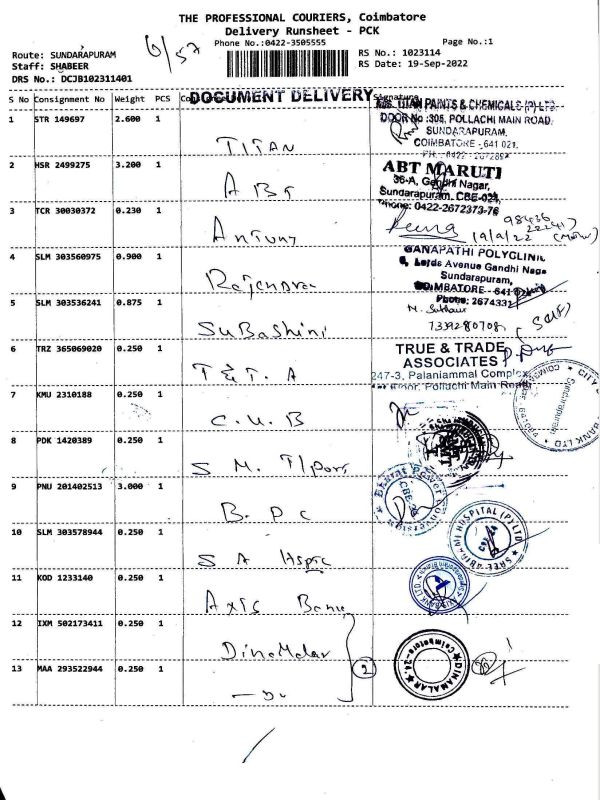 THE PROFESSIONAL COURIERS, Coimbatore
Delivery Runsheet - PCK
Phone No.:0422-3505555
Page No.:1
Route: SUNDARAPURAM
Staff: SHABEER
DRS No.: DCJB102311401
6/57
RS No.: 1023114
RS Date: 19-Sep-2022
S No Consignment No Weight PCS DOCUMENT DELIVERY Signature
1 STR 149697 2.600 1 TITAN
M/S. TITAN PAINTS & CHEMICALS (P) LTD.
DOOR No :305, POLLACHI MAIN ROAD,
SUNDARAPURAM,
COIMBATORE - 641 021.
2 HSR 2499275 3.200 1 ABT
ABT MARUTI
36-A, Gandhi Nagar,
Sundarapuram, CBE-024,
Phone: 0422-2672373-76
3 TCR 30030372 0.230 1 Antony
98436
19/9/22
4 SLM 303560975 0.900 1 Rajendran
GANAPATHI POLYCLINIC
Lords Avenue Gandhi Nagar
Sundarapuram,
COIMBATORE - 641 024
Phone: 2674331
5 SLM 303536241 0.875 1 SuBashini
7339280708
(Self)
6 TRZ 365069020 0.250 1 T & T. A
TRUE & TRADE
ASSOCIATES
247-3, Palaniammal Complex,
Pollachi Main Road
7 KMU 2310188 0.250 1 C. U. B
CITY
BANK LTD
Sundarapuram
8 PDK 1420389 0.250 1 S M. T/Port
9 PNU 201402513 3.000 1 B. P C
Bharat Power Conversion
CBE-24
10 SLM 303578944 0.250 1 S A Hspt
SREE ABIRAMI HOSPITAL (P) LTD
CBE-24
11 KOD 1233140 0.250 1 Axis Bank
12 IXM 502173411 0.250 1 DinaMalar
DINAMALAR
Coimbatore - 24.
13 MAA 293522944 0.250 1 — Do
2